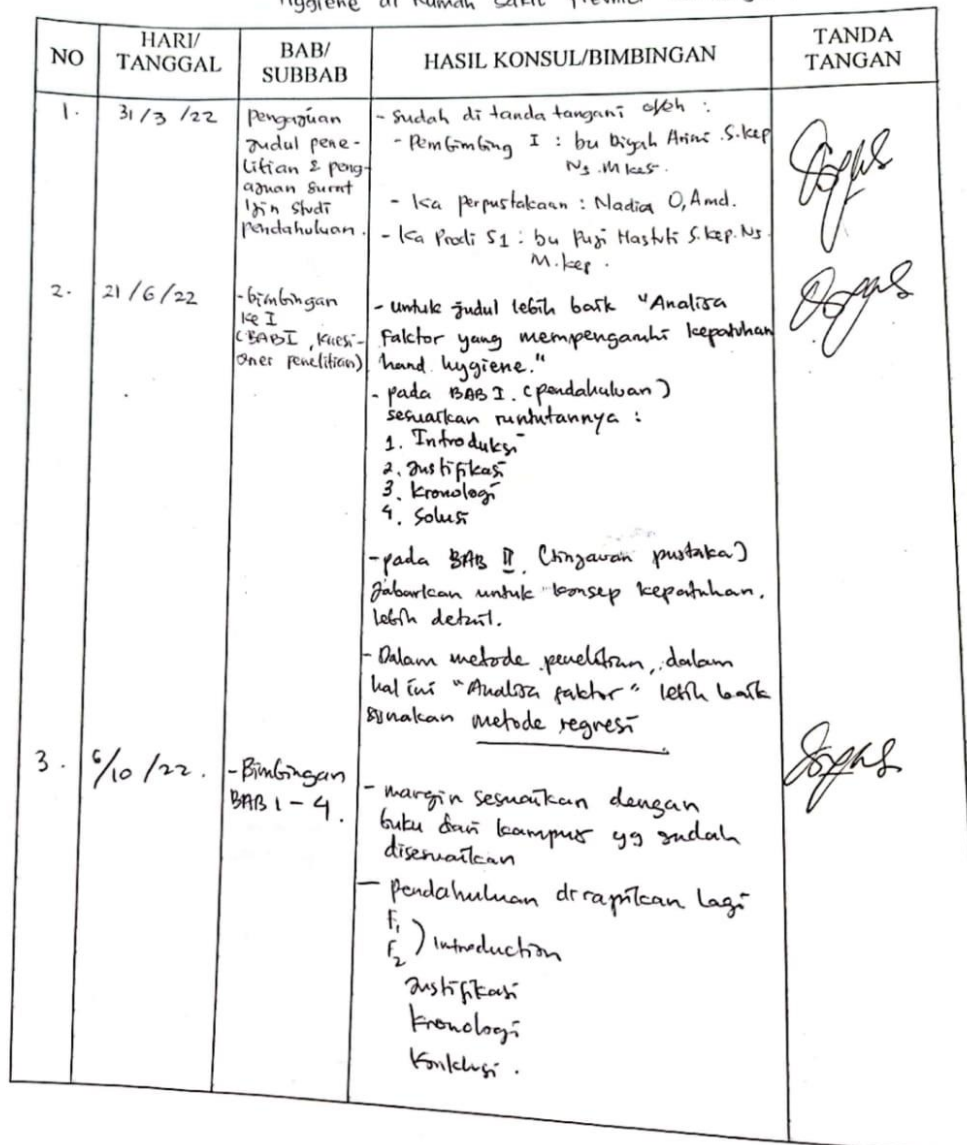 Hygiene di Rumah Sakit Premier
NO
HARI/
TANGGAL
BAB/
SUBBAB
HASIL KONSUL/BIMBINGAN
TANDA
TANGAN
1.
31/3/22
Pengajuan
judul pene-
litian & peng-
ajuan surat
ijin studi
pendahuluan.
- Sudah di tanda tangani oleh :
- Pembimbing I : bu Diyah Arini S.kep
Ns. M kes.
- Ka perpustakaan : Nadia O, Amd.
- Ka Prodi S1 : bu Puji Hastuti S.kep.Ns.
M.kep.
2.
21/6/22
- bimbingan
ke I
(BAB I, Kuesi-
oner penelitian)
- untuk judul lebih baik "Analisa
Faktor yang mempengaruhi kepatuhan
hand hygiene."
- pada BAB I. (pendahuluan)
sesuaikan runtutannya :
1. Introduksi
2. Justifikasi
3. Kronologi
4. Solusi
- pada BAB II. (tinjauan pustaka)
jabarkan untuk konsep kepatuhan.
lebih detail.
- Dalam metode penelitian, dalam
hal ini "Analisa faktor" lebih baik
gunakan metode regresi
3.
6/10/22.
- Bimbingan
BAB 1 - 4.
- margin sesuaikan dengan
buku dari kampus yg sudah
disesuaikan
- pendahuluan dirapikan lagi
F1
F2 ) Introduction
Justifikasi
Kronologi
Konklusi.